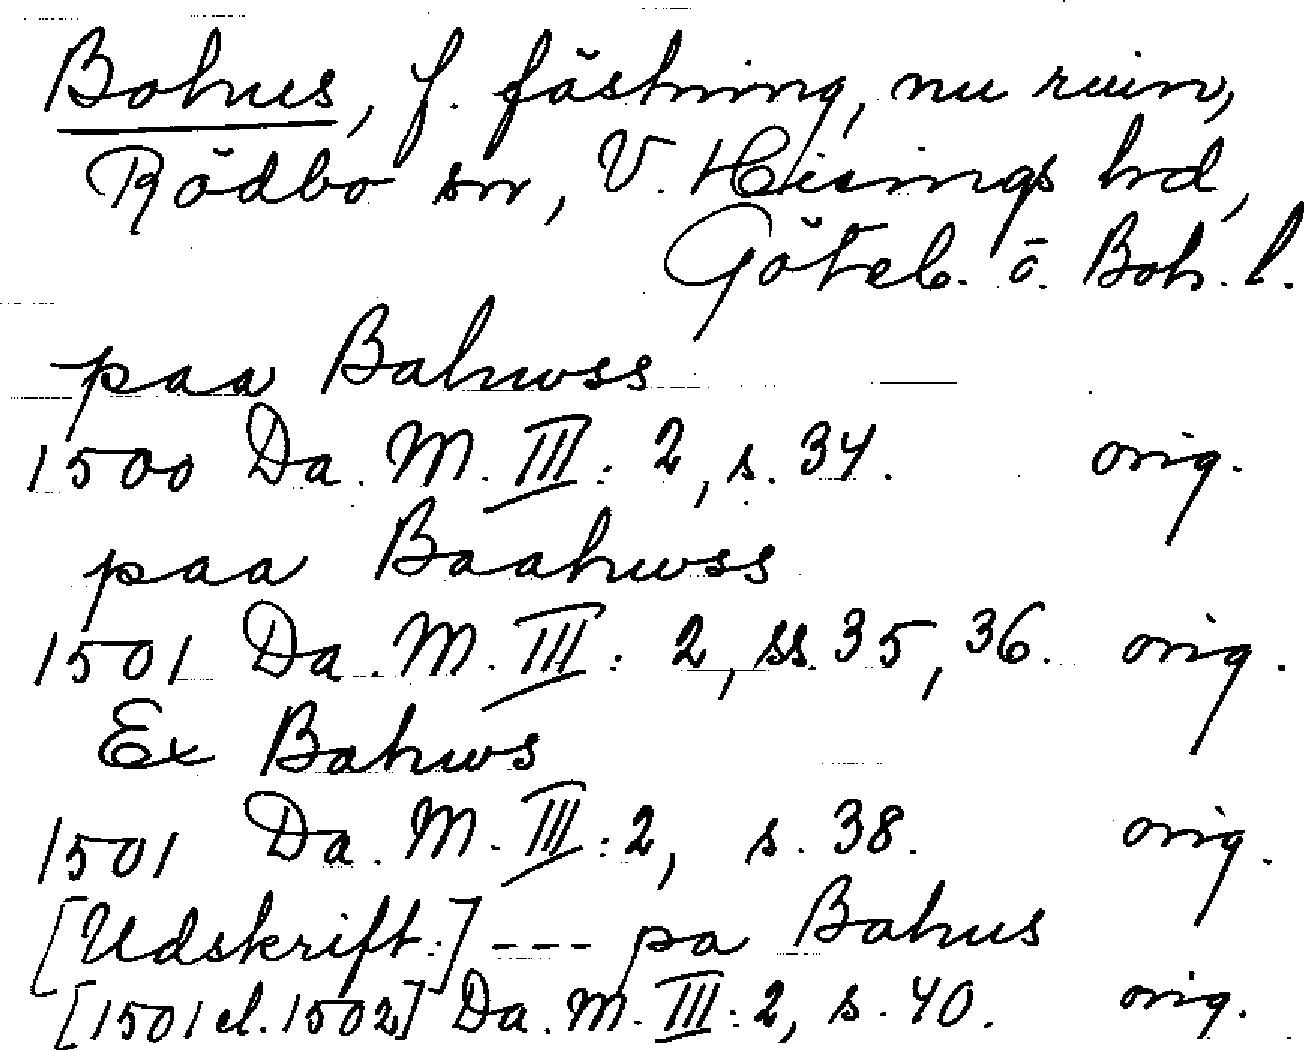 Bohus, f. fästning, nu ruin,
Rödbo sn, V. Hisings hd,
Göteb. o. Boh. l.
paa Bahwss
1500 Da. M. III: 2, s. 34. orig.
paa Baahwss
1501 Da. M. III: 2, ss. 35, 36. orig.
Ex Bahws
1501 Da. M. III: 2, s. 38. orig.
[Udskrift:] --- pa Bahus
[1501 el. 1502] Da. M. III: 2, s. 40. orig.